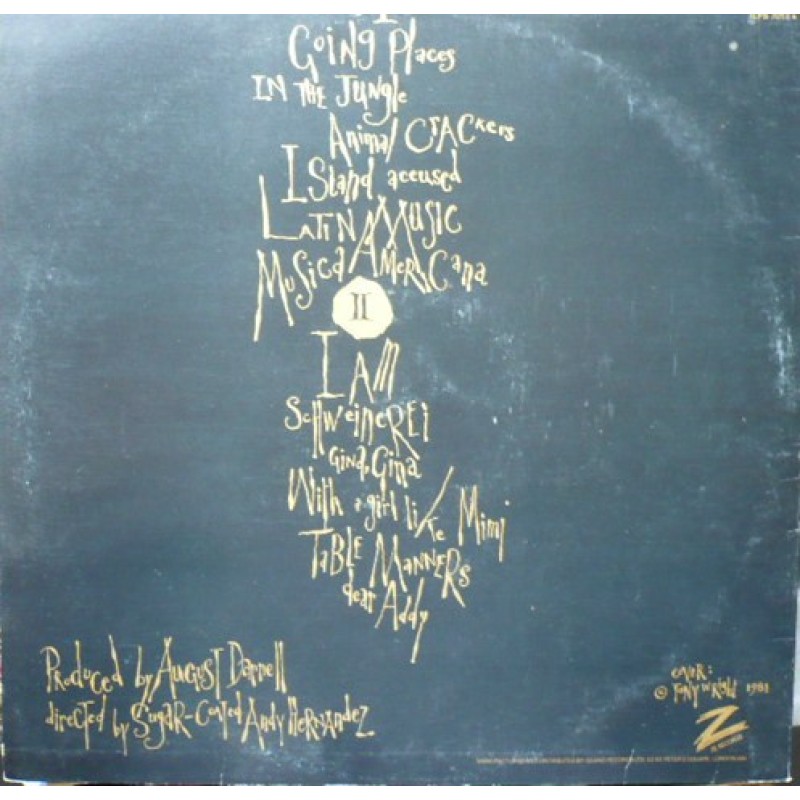 I
Going Places
IN THE JUNGLE
Animal CrACkers
IStand accused
LATIN MUSIC
MusicA AMERICana
II
I AM
ScHWeinerEi
Gina, Gina
With a girl like Mimi
TaBLE MANNERS
dear Addy
Produced by AUGUST Darnell
directed by SUgAR-Coated Andy HERNANDEZ
cover:
© TONY WRIGht 1981
Z